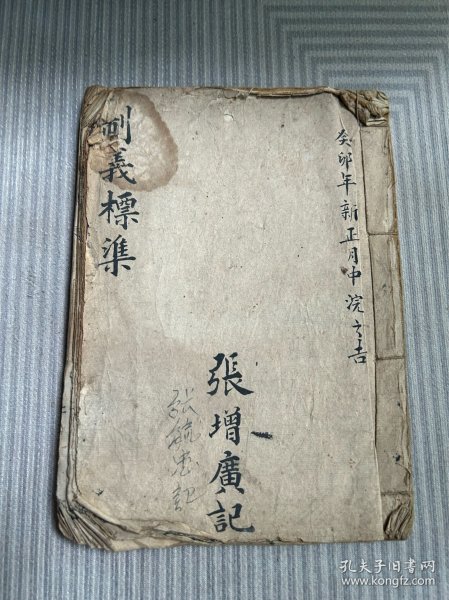 癸卯年新正月中浣之吉
制義標準
張增廣記
张毓忠記
孔夫子旧书网
www.kongfz.com